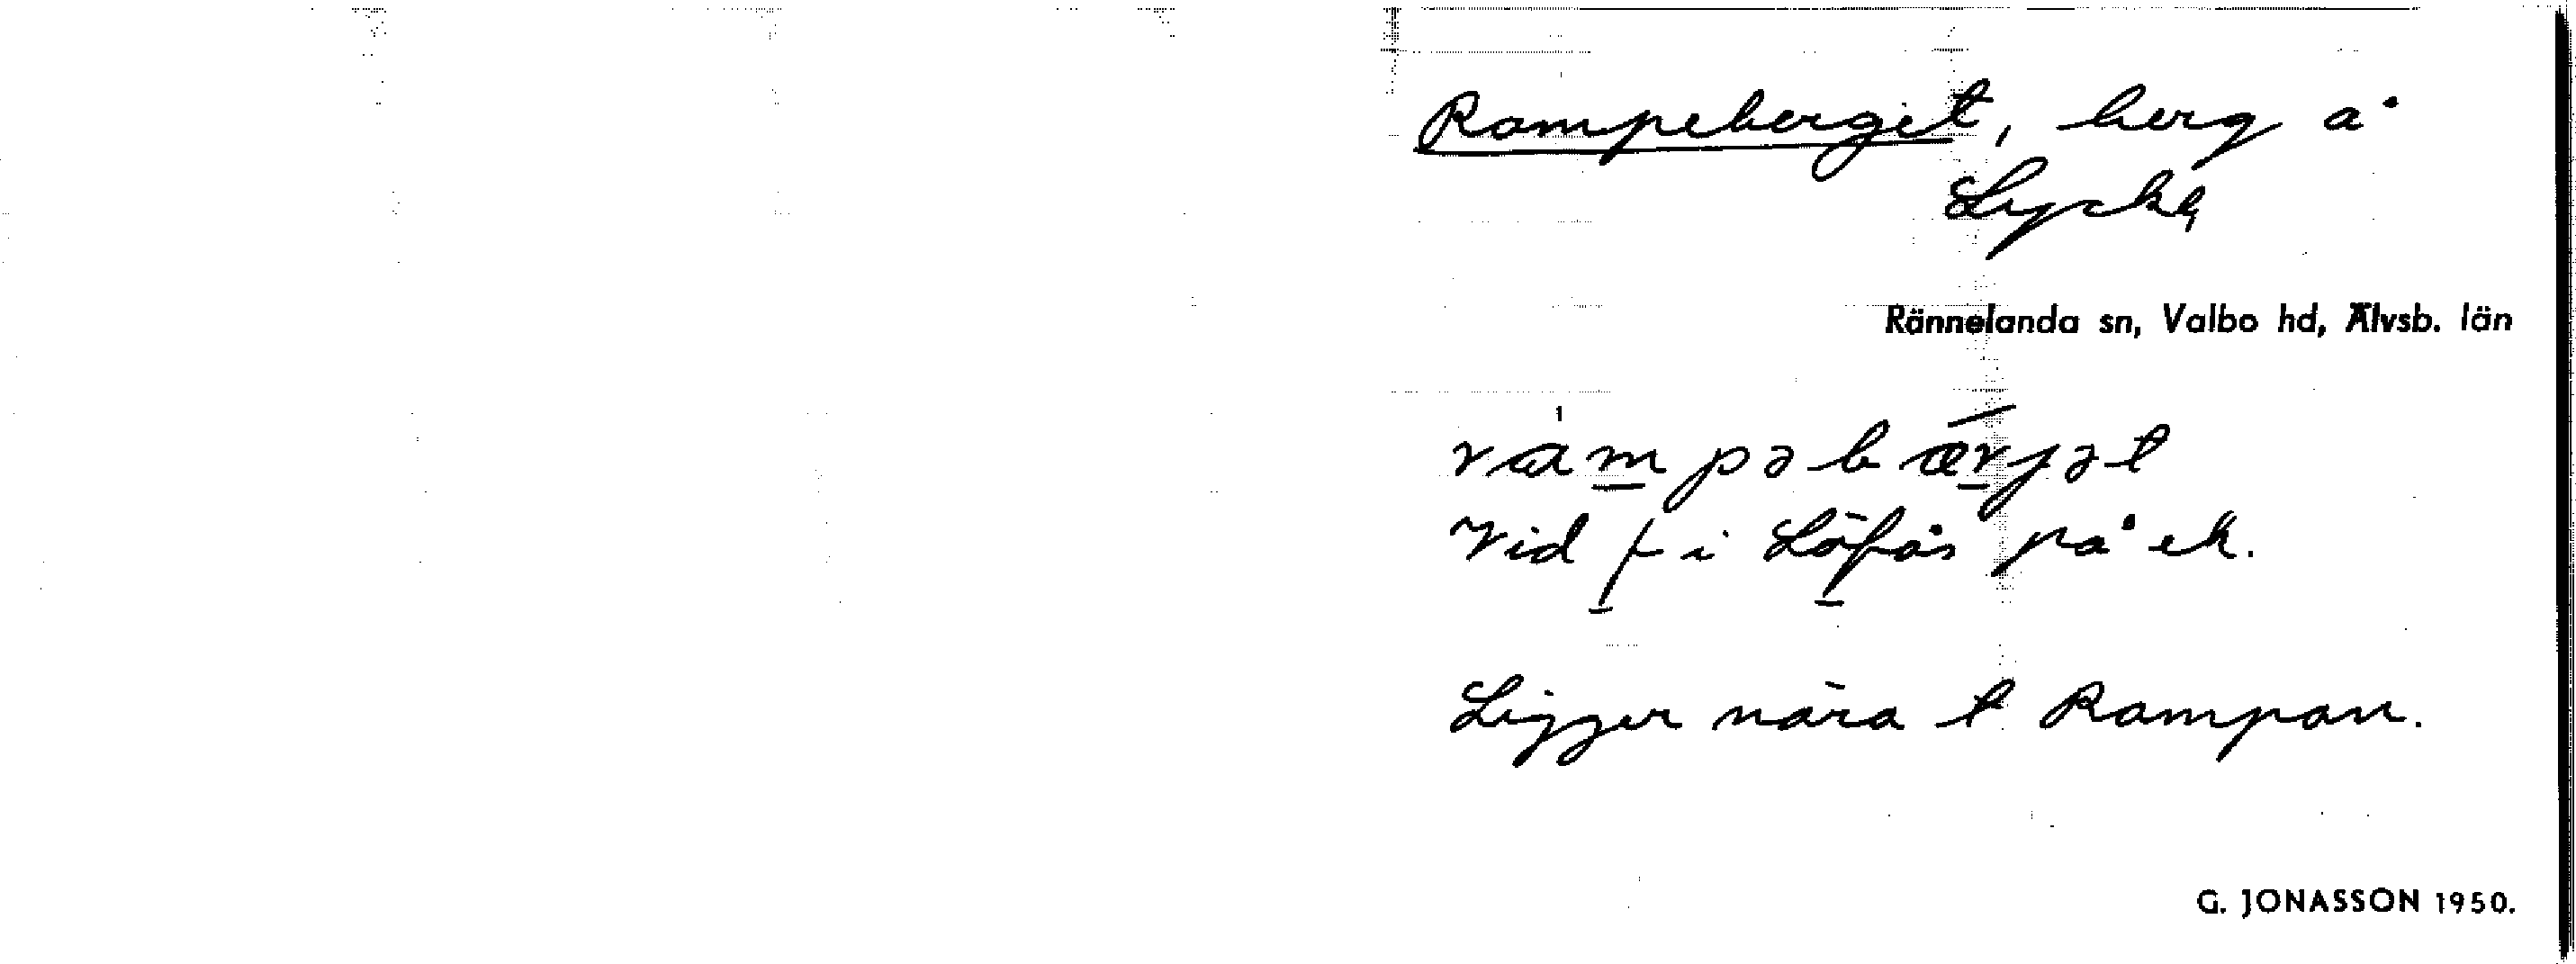 Rampeberget, berg å
Lycke
Rännelanda sn, Valbo hd, Älvsb. län
rampəbærjət
Vid f i Löfås på ek.
Ligger nära t Rampan.
G. JONASSON 1950.